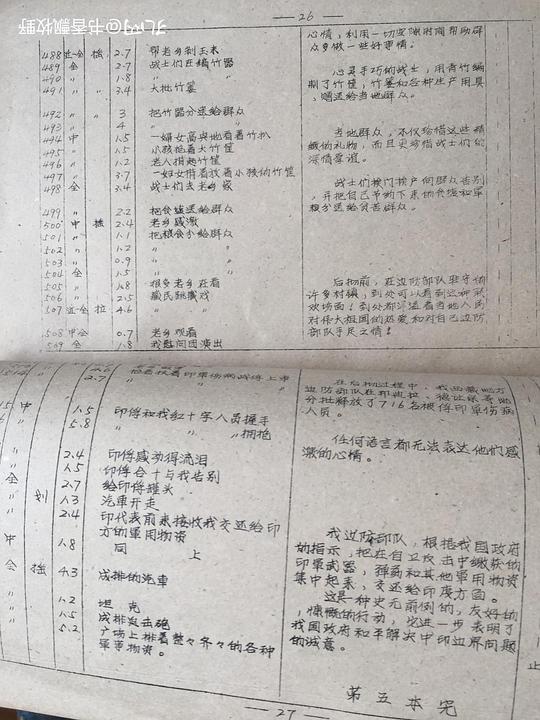 孔网@书香飘牧野
—26—
心情，利用一切空隙时间帮助群
众多做一些好事情。
488 近-全 摇 2.7 帮老乡剥玉米
489 全 〃 2.2 战士们在编竹器
490 〃 〃 1.8 〃 〃
491 〃 〃 3.4 大批竹筐
心灵手巧的战士，用青竹编
制了竹筐，竹篓和各种生产用具，
赠送给当地群众。
492 〃 〃 3 把竹器分送给群众
493 〃 4 〃 〃
494 中 1.5 一妇女高兴地看着竹扒
495 〃 1.5 小孩抱着大竹筐
496 〃 1.2 老人捎起竹筐
497 〃 3.7 一妇女背着放着小孩的竹筐
498 全 3.4 战士们去老乡家
当地群众，不仅珍惜这些精
緻的礼物，而且更珍惜战士们的
深情厚谊。
战士们挨门挨户向群众告别
，并把自己节约下来的食盐和军
粮分送给贫苦群众。
499 〃 2.2 把食盐送给群众
500 中 摇 2.4 老乡感激
501 〃 1.1 把粮食分给群众
502 〃 1.2 〃 〃
503 〃 0.9 〃 〃
504 全 1.5 〃 〃
505 〃 1.8 很多老乡在看
506 〃 2.5 藏民跳藏戏
507 近-全 拉 4.6
后撤前，在边防部队驻守的
许多村镇，到处可以看到这种联
欢场面！到处都洋溢着当地人民
对伟大祖国的热爱和对自己边防
部队手足之情！
508 中全 0.7 老乡观看
509 全 1.8 我慰问团演出
2.7
在后撤过程中，我西藏地方
边防部队在邦迪拉、德让宗等地
分批释放了716名被俘印军伤病
人员。
1.5 印俘和我红十字人员握手
5.8 〃 〃 拥抱
任何语言都无法表达他们感
激的心情。
2.4 印俘感动得流泪
1.5 印俘合十与我告别
全 2.7 给印俘罐头
〃 划 1.3 汽車开走
〃 2.4 印代表前来接收我交还给印
方的軍用物资
中 1.8 同 上
全 摇 4.3 成排的汽車
我边防部队，根据我国政府
的指示，把在自卫反击中缴获的
印軍武器，弹药和其他軍用物资
集中起来，交还给印度方面。
〃 1.2 坦 克
〃 1.5 成排迫击砲
〃 5.2 广场上排着整々齐々的各种
軍事物资。
这是一种史无前例的，友好的
，慷慨的行动，它进一步表明了
我国政府和平解决中印边界问题
的诚意。
第五本完
—27—
止